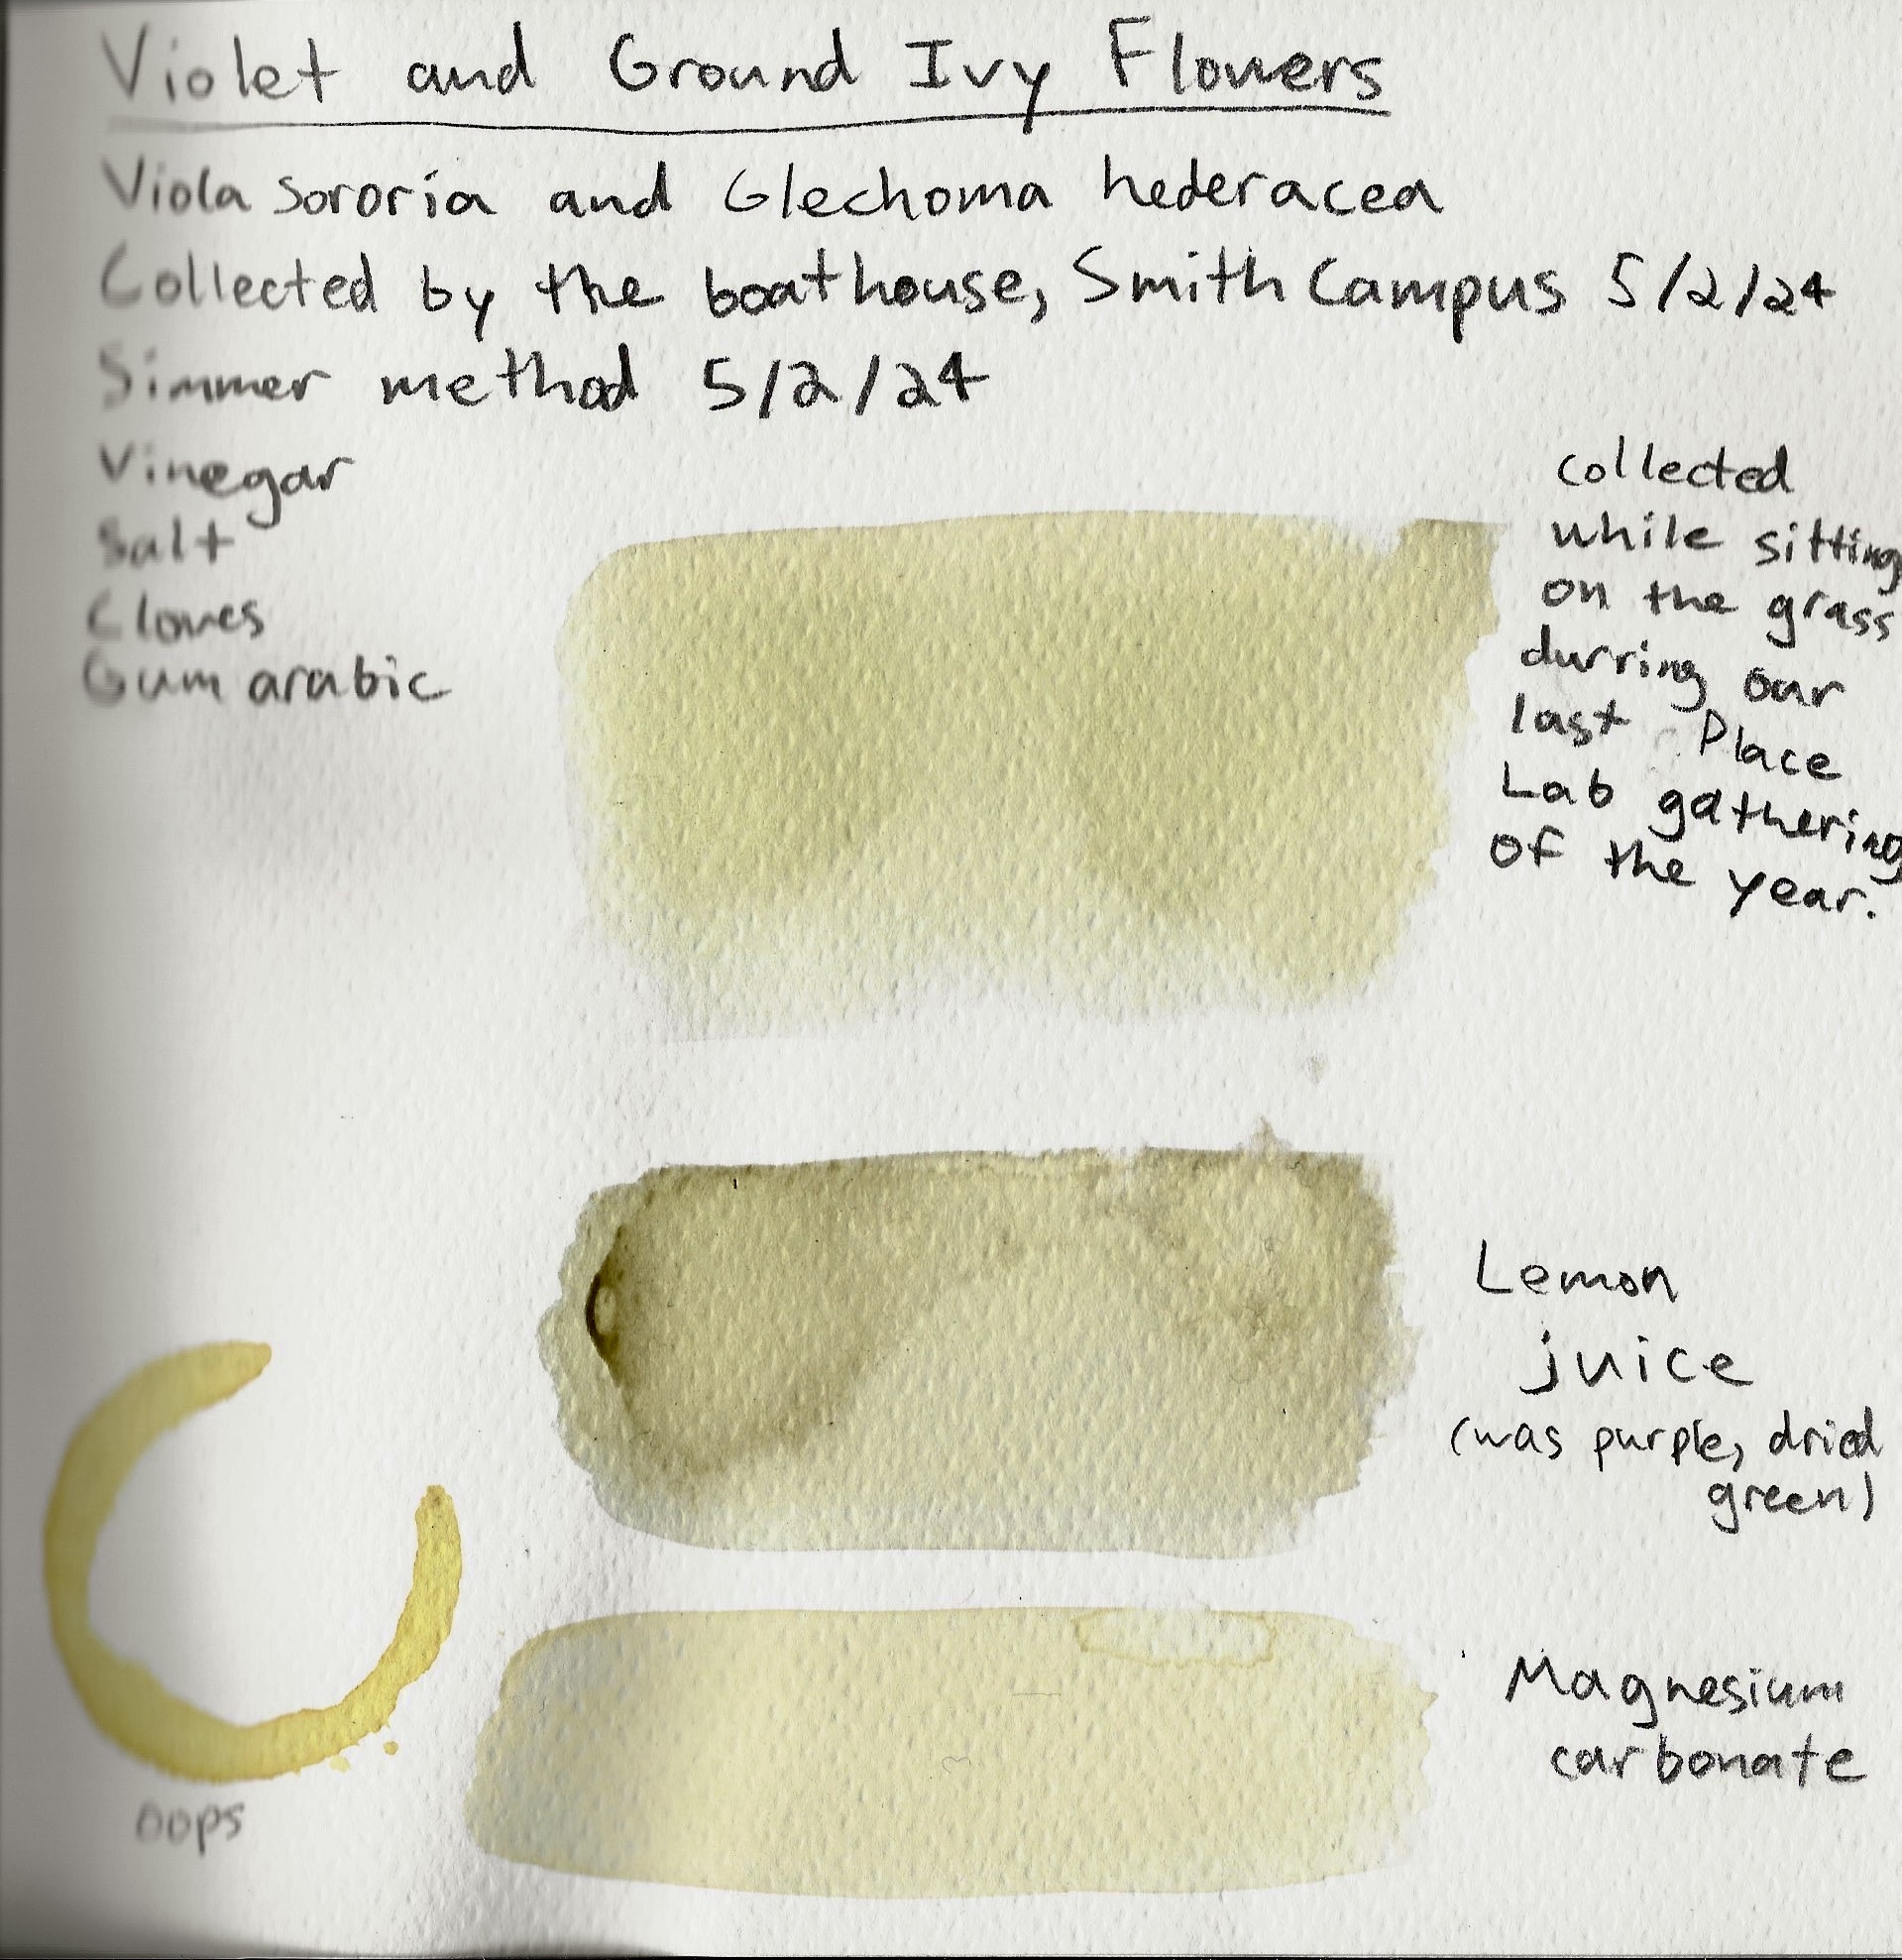 Violet and Ground Ivy Flowers
Viola sororia and Glechoma hederacea
Collected by the boathouse, Smith Campus 5/2/24
Simmer method 5/2/24
Vinegar
Salt
Cloves
Gum arabic
collected
while sitting
on the grass
durring our
last Place
Lab gathering
of the year.
Lemon
juice
(was purple, dried
green)
Magnesium
carbonate
oops